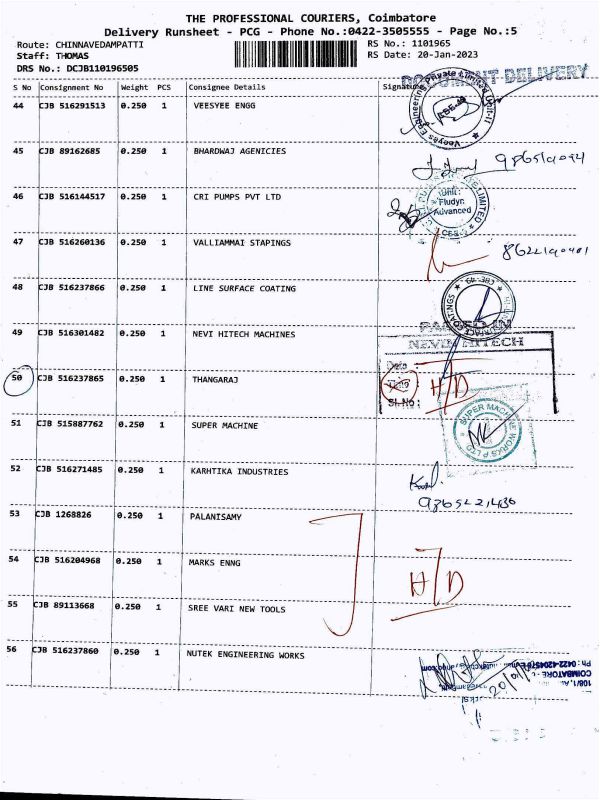 THE PROFESSIONAL COURIERS, Coimbatore
Delivery Runsheet - PCG - Phone No.:0422-3505555 - Page No.:5
Route: CHINNAVEDAMPATTI RS No.: 1101965
Staff: THOMAS RS Date: 20-Jan-2023
DRS No.: DCJB110196505
DOCUMENT DELIVERY
S No Consignment No Weight PCS Consignee Details Signature
44 CJB 516291513 0.250 1 VEESYEE ENGG
45 CJB 89162685 0.250 1 BHARDWAJ AGENICIES
46 CJB 516144517 0.250 1 CRI PUMPS PVT LTD
Unit :
Fludyn
Advanced
47 CJB 516260136 0.250 1 VALLIAMMAI STAPINGS
48 CJB 516237866 0.250 1 LINE SURFACE COATING
49 CJB 516301482 0.250 1 NEVI HITECH MACHINES
NEVI HITECH
Date :
50 CJB 516237865 0.250 1 THANGARAJ H/D
Sl.No :
51 CJB 515887762 0.250 1 SUPER MACHINE
SUPER MACHINE WORKS P LTD
52 CJB 516271485 0.250 1 KARHTIKA INDUSTRIES
53 CJB 1268826 0.250 1 PALANISAMY
54 CJB 516204968 0.250 1 MARKS ENNG H/D
55 CJB 89113668 0.250 1 SREE VARI NEW TOOLS
56 CJB 516237860 0.250 1 NUTEK ENGINEERING WORKS